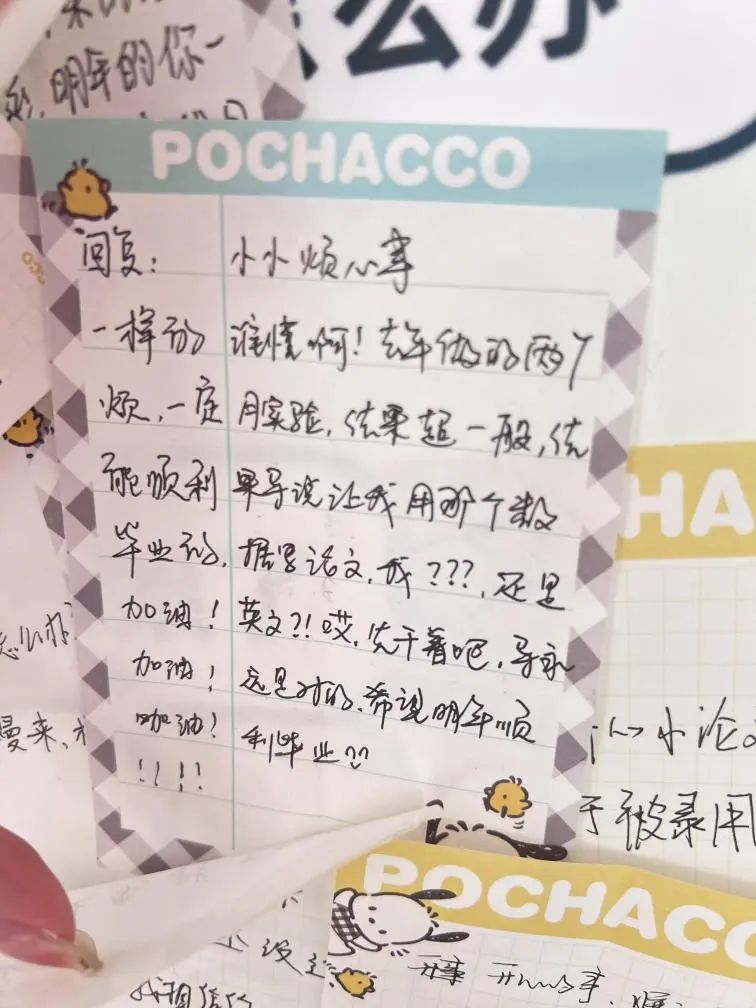 么办
明年的你一
POCHACCO
回复:
一样的
烦,一定
能顺利
毕业的,
加油!
加油!
加油!
!!!!
小小烦心事
谁懂啊!去年做的两个
月实验,结果超一般,结
果导说让我用那个数
据写论文,我???,还是
英文?!哎,先干着吧,导永
远是对的,希望明年顺
利毕业
HA
怎么办
慢来,
小论
于被录用
POCHACC
我相信你